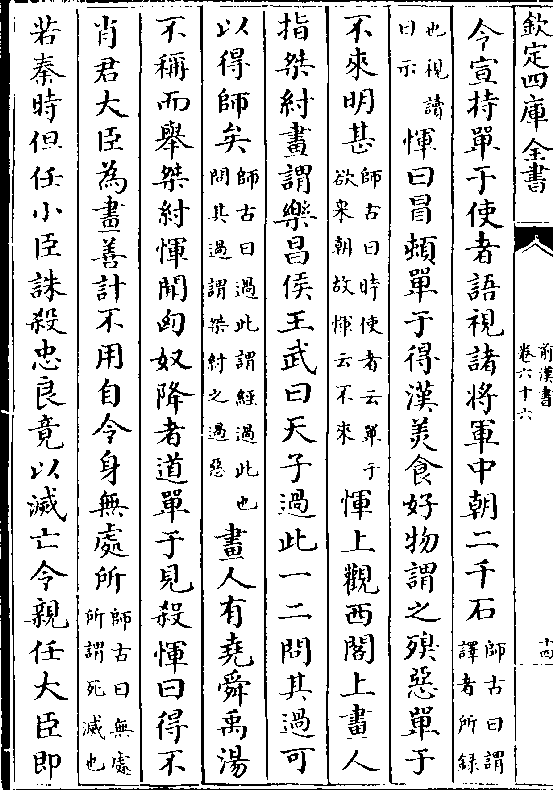 欽定四庫全書
前漢書
卷六十六
十四
令宣持單于使者語視諸將軍中朝二千石師古曰謂譯者所録
也視讀曰示惲曰冒頓單于得漢美食好物謂之殠惡單于
不來明甚師古曰時使者云單于欲來朝故惲云不來惲上觀西閤上畫人
指桀紂畫謂樂昌侯王武曰天子過此一二問其過可
以得師矣師古曰過此謂經過此也問其過謂桀紂之過惡畫人有堯舜禹湯
不稱而舉桀紂惲聞匈奴降者道單于見殺惲曰得不
肖君大臣為畫善計不用自令身無處所師古曰無處所謂死滅也
若秦時但任小臣誅殺忠良竟以滅亡令親任大臣即